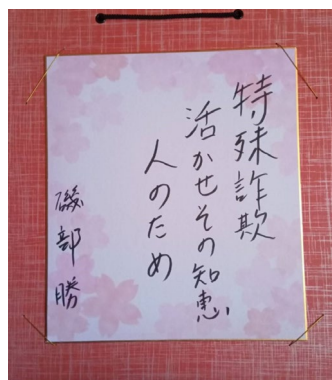 特殊詐欺
活かせその知恵
人のため
磯部勝